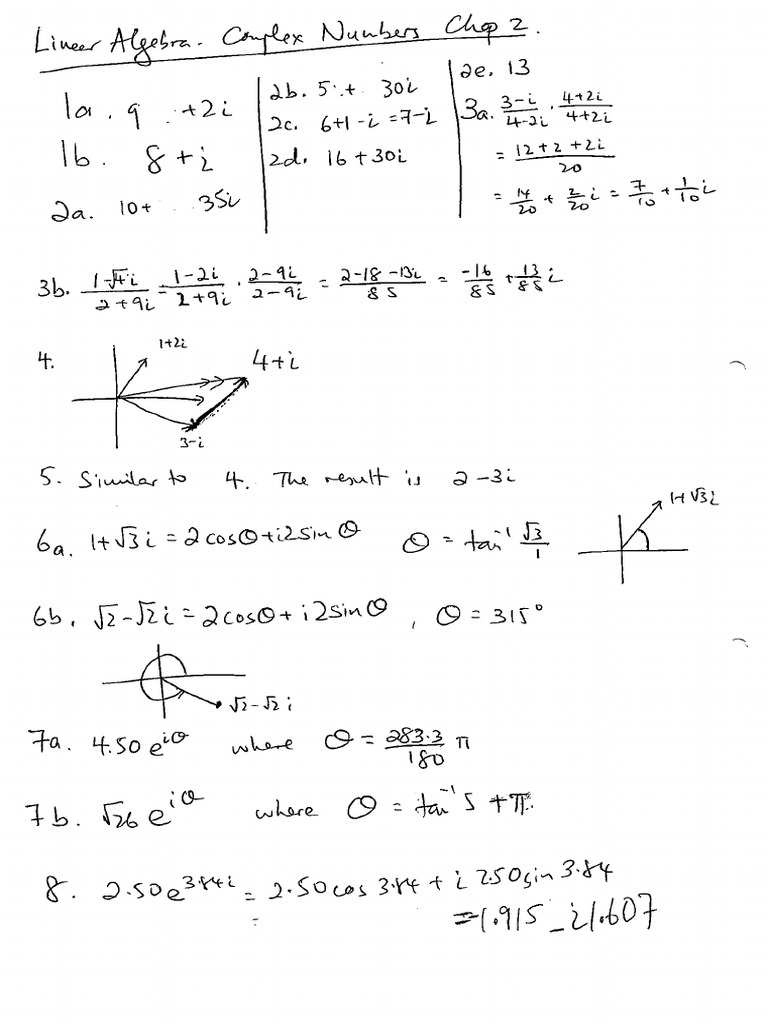 Linear Algebra. Complex Numbers Chap 2.
1a. 9 +2i
1b. 8+i
2a. 10+ 35i
2b. 5 + 30i
2c. 6+1-i =7-i
2d. 16+30i
2e. 13
3a. (3-i)/(4-2i) · (4+2i)/(4+2i)
= (12+2+2i)/20
= 14/20 + 2/20 i = 7/10 + 1/10 i
3b. (1-√4i)/(2+9i) = (1-2i)/(2+9i) · (2-9i)/(2-9i) = (2-18-13i)/85 = -16/85 + 13/85 i
4. 1+2i 4+i
3-i
5. Similar to 4. The result is 2-3i
6a. 1+√3 i = 2cosθ+i2sinθ θ = tan⁻¹ √3/1 1+√3i
6b. √2-√2 i = 2cosθ + i2sinθ , θ = 315°
√2-√2 i
7a. 4.50 e^iθ where θ = 283.3/180 π
7b. √26 e^iθ where θ = tan⁻¹ 5 + π.
8. 2.50e^3.84i = 2.50cos 3.84 + i 2.50sin 3.84
= -1.915 - i1.607